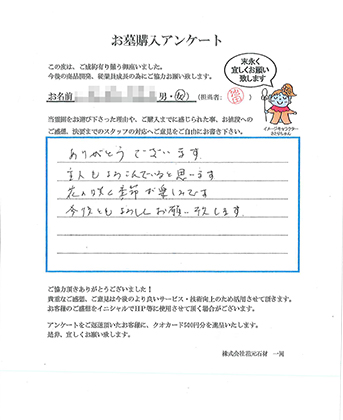 お墓購入アンケート
この度は、ご成約有り難う御座いました。
今後の商品開発、従業員成長の為にご協力お願い致します。
末永く
宜しくお願い
致します
お名前
男・女
(担当者:
)
イメージキャラクター
当霊園をお選び下さった理由や、ご購入までに感じられた事、お値段への
ご感想、検討までのスタッフの対応へご意見をご自由にお書き下さい。
ありがとうございます。
主人もよろこんでいると思います
花の咲く季節が楽しみです
今後ともよろしくお願い致します。
ご協力頂きありがとうございました!
貴重なご感想、ご意見は今後のより良いサービス・技術向上のため活用させて頂きます。
お客様のご感想をイニシャルでHP等に使用させて頂く場合がございます。
アンケートをご返送頂いたお客様に、クオカード500円分を進呈いたします。
是非、宜しくお願い致します。
株式会社 石材 一同